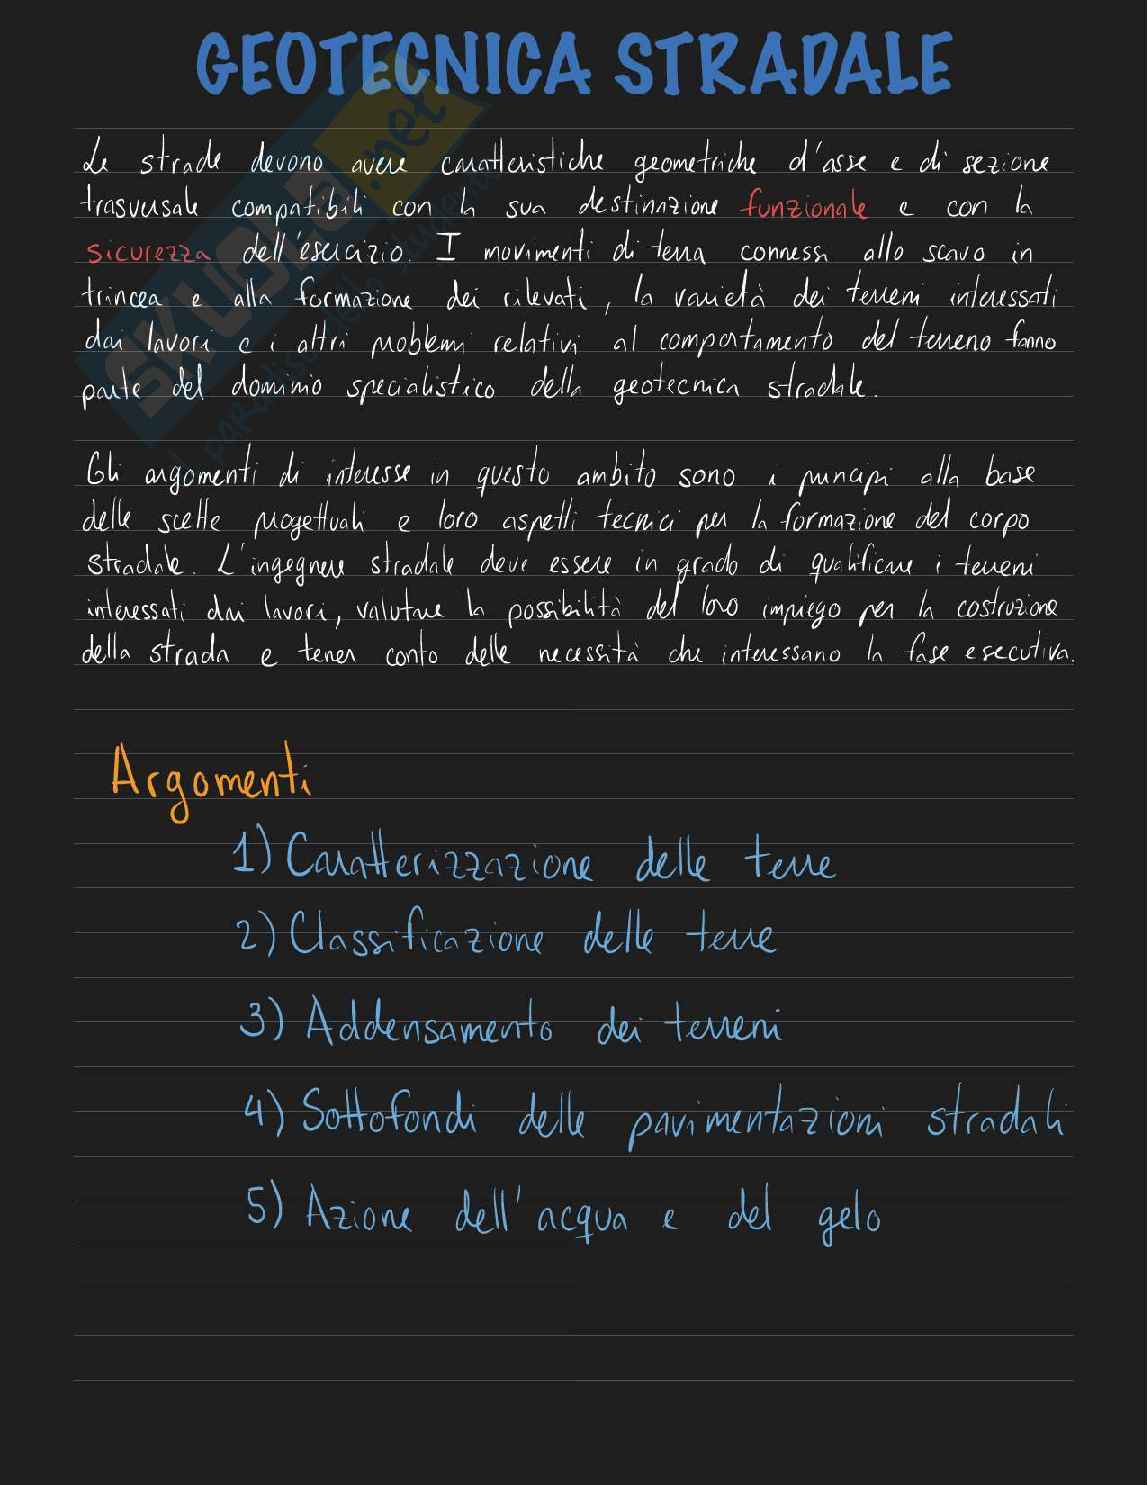 GEOTECNICA STRADALE
Le strade devono avere caratteristiche geometriche d'asse e di sezione
trasversale compatibili con la sua destinazione funzionale e con la
sicurezza dell'esercizio. I movimenti di terra connessi allo scavo in
trincea e alla formazione dei rilevati, la varietà dei terreni interessati
dai lavori e i altri problemi relativi al comportamento del terreno fanno
parte del dominio specialistico della geotecnica stradale.
Gli argomenti di interesse in questo ambito sono i principi alla base
delle scelte progettuali e loro aspetti tecnici per la formazione del corpo
stradale. L'ingegnere stradale deve essere in grado di qualificare i terreni
interessati dai lavori, valutare la possibilità del loro impiego per la costruzione
della strada e tener conto delle necessità che interessano la fase esecutiva.
Argomenti
1) Caratterizzazione delle terre
2) Classificazione delle terre
3) Addensamento dei terreni
4) Sottofondi delle pavimentazioni stradali
5) Azione dell'acqua e del gelo
SKUOLA.net